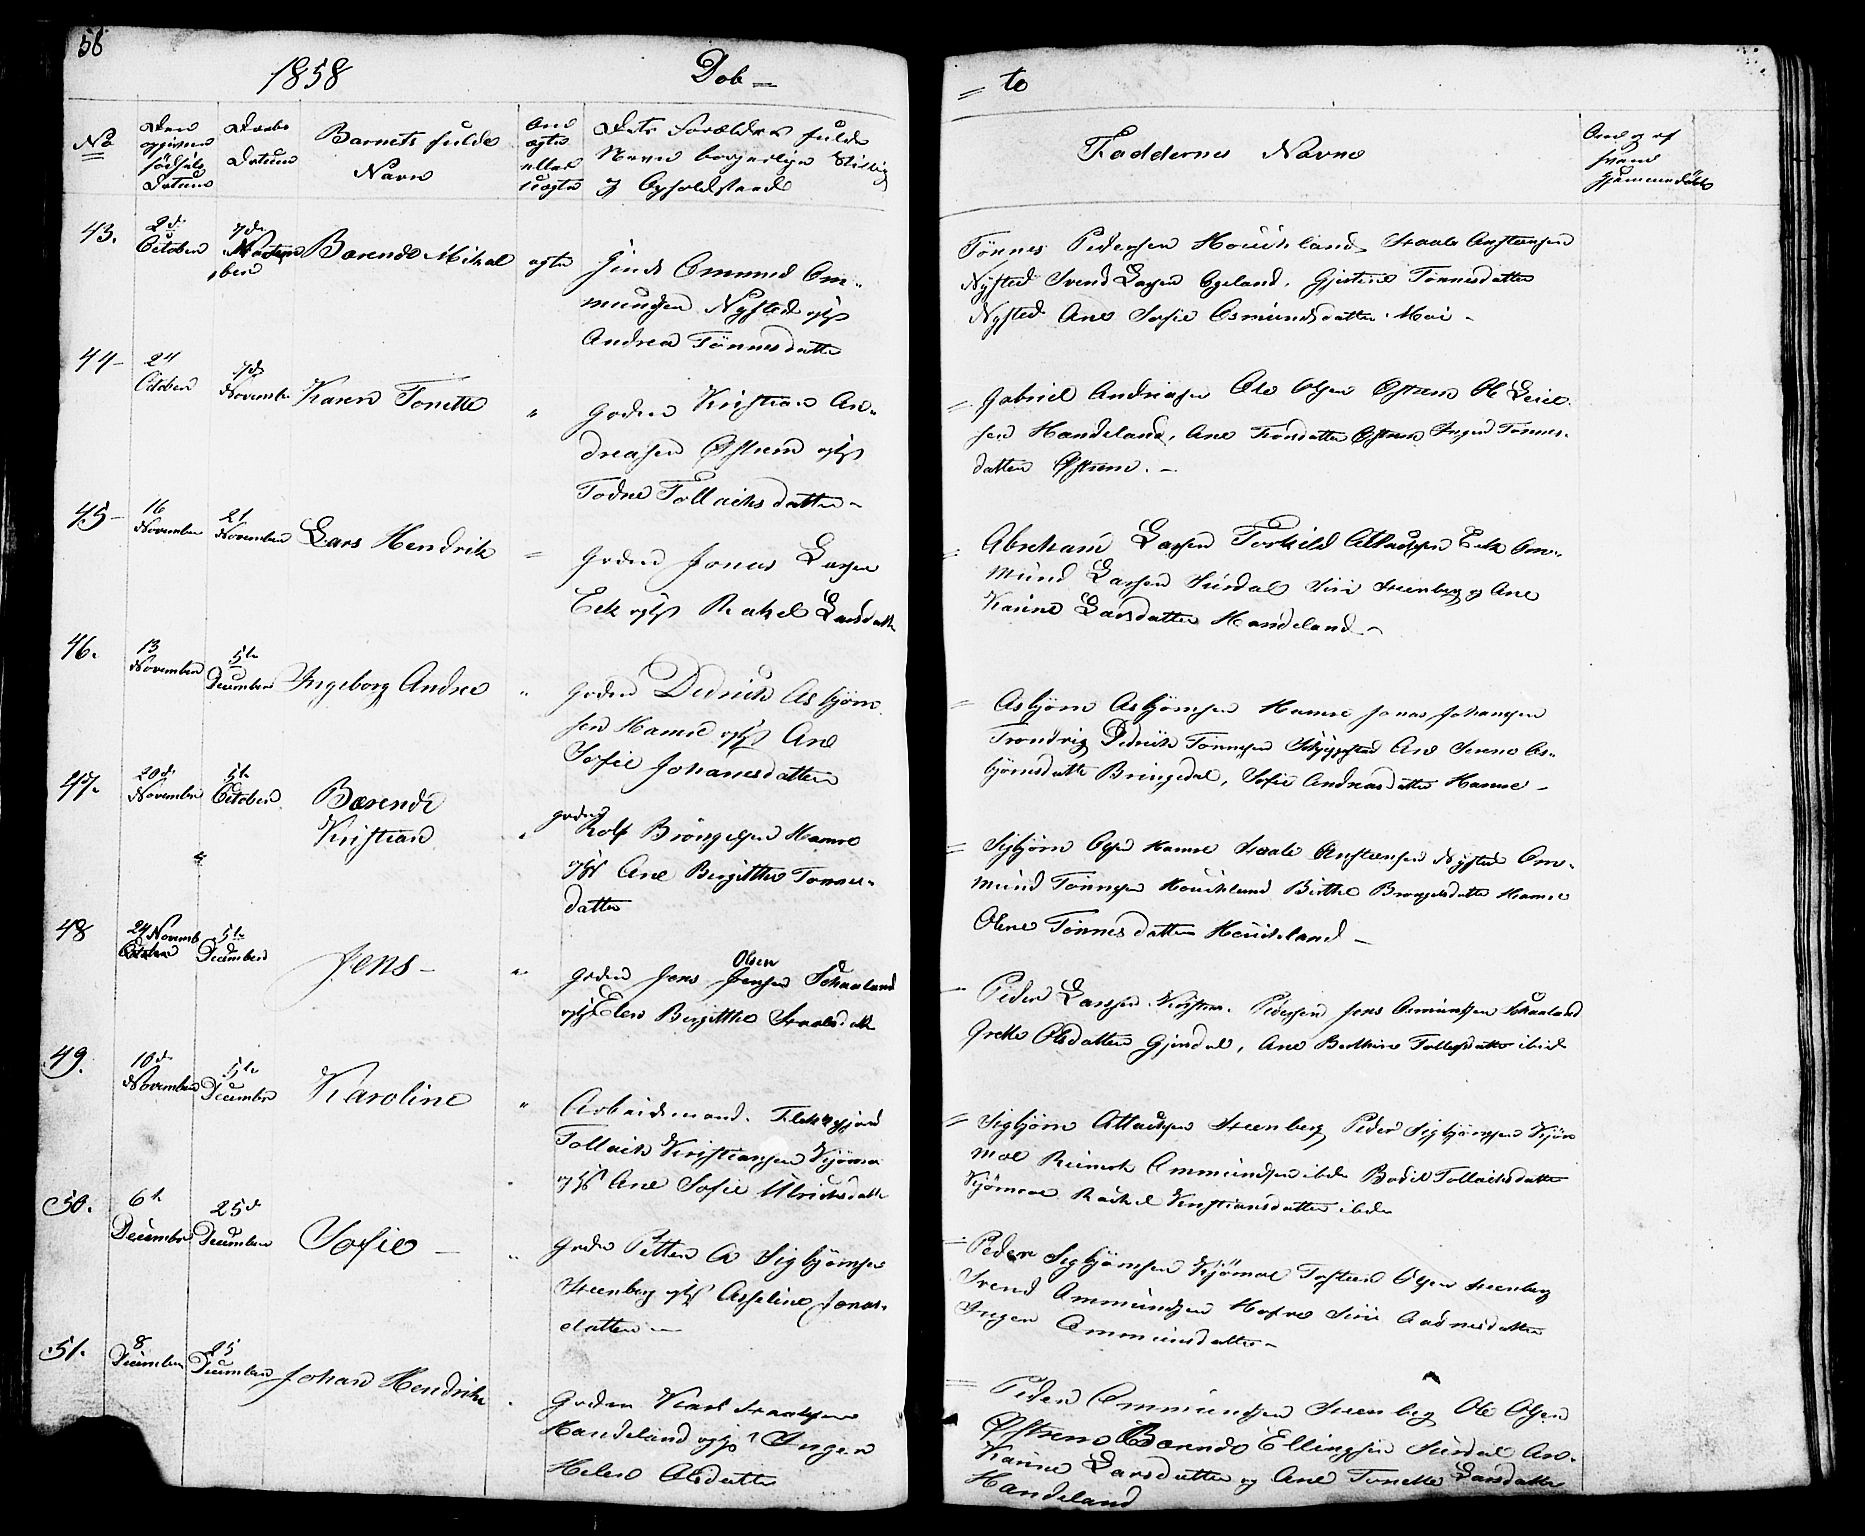 56
1858
Dob =
= te
No
Den opgivne fødsels Datum
Daabs Datum
Barnets fulde Navn
Om ægte eller uægte
Dets Forældres fulde
Navn borgerlige Stilling
og Opholdsted
Faddernes Navne
Om og af hvem hjemmedøbt
43.
2d October
7de Novem
ber
Bærendt Mikal
ægte
Amund Om-
mundsen Nysted og h
Andrea Tønnesdatter
Tønnes Pedersen Houkland Staale Anstensen
Nysted Svend Larsen Egeland, Gjertine Tønnesdatter
Nysted Ane Sofie Osmundsdatter Moi -
44 -
24 October
7de November
Karen Tonette
"
Grdm Kristian An-
dreasen Østrem og h
Todne Tollachsdatter -
= Gabriel Andreasen Ole Olsen Østrem Ol
sen Handeland, Ane datter Østrem Inger Tønnes-
datter Østrem. -
45 -
16 November
21 November
Lars Hendrik
=
Grdm Jonas Larsen
Eek og h Rakel Larsdatter
= Abraham Larsen Torkild Atlaksen Eek Om-
mund Larsen Siri Steenberg og Ane
Karine Larsdatter Handeland -
46.
13 November
5te December
Ingeborg Andrea
"
Grdm Didrich Asbjørn
sen Hamre og h Ane
Sofie Johanesdatter
= Asbjørn Asbjørnsen Hamre Jonas Johansen
Didrich Tønnesen Ane Serene As-
bjørnsdatter Bringedal, Sofie Andreasdatter Hamre -
47.
20de November
5te October
Bærendt
Kristian
"
grdm
Rolf Brøngelsen Hamre
og h Ane Birgitthe Tønnes-
datter
= Sigbjørn Hamre Staale Anstensen Nysted Om-
mund Tønnesen Houkland Birthe Brøngelsdatter Hamre
Olene Tønnesdatter Houkland -
48
24 Novemb
October
5te December
Jens -
"
Olsen
Grdm Jens Jensen Skaaland
og h Elen Birgitthe Staalesdatter
- Peder Larsen Pedersen Jens Osmundsen Skaaland
Grethe Olsdatter Gjersdal, Ane Berthine ibid
49.
10de November
5te December
Karoline
"
Arbeidsmand. Flekkefjord
Tollach Kristiansen Kjørmo
og h Ane Sofie Ulrichsdatter
= Sigbjørn Atlaksen Steenberg Peder Sigbjørnsen Kjør
moe Reinert Ommundsen ibidm Bodil Tollachsdatter
Kjørmoe Rachel Kristiansdatter ibidm
50.
6te December
25de December
Sofie -
"
Grdm Petter A Sigbjørnsen
Steenberg og h Asseline Jonas-
datter -
- Peder Sigbjørnsen Kjørmoe Tosteen Olsen Steenberg
Svend Ommundsen Siri Aadnesdatter
Inger Ommundsdatter -
51.
8 December
25 December
Johan Hendrik
"
Grdm
Handeland og h Inger
Helene Olsdatter
= Peder Ommundsen Steenberg Ole Olsen
Østrem Bærendt Ellingsen An-
Karine Larsdatter og Ane Tonette Larsdatter
Handeland